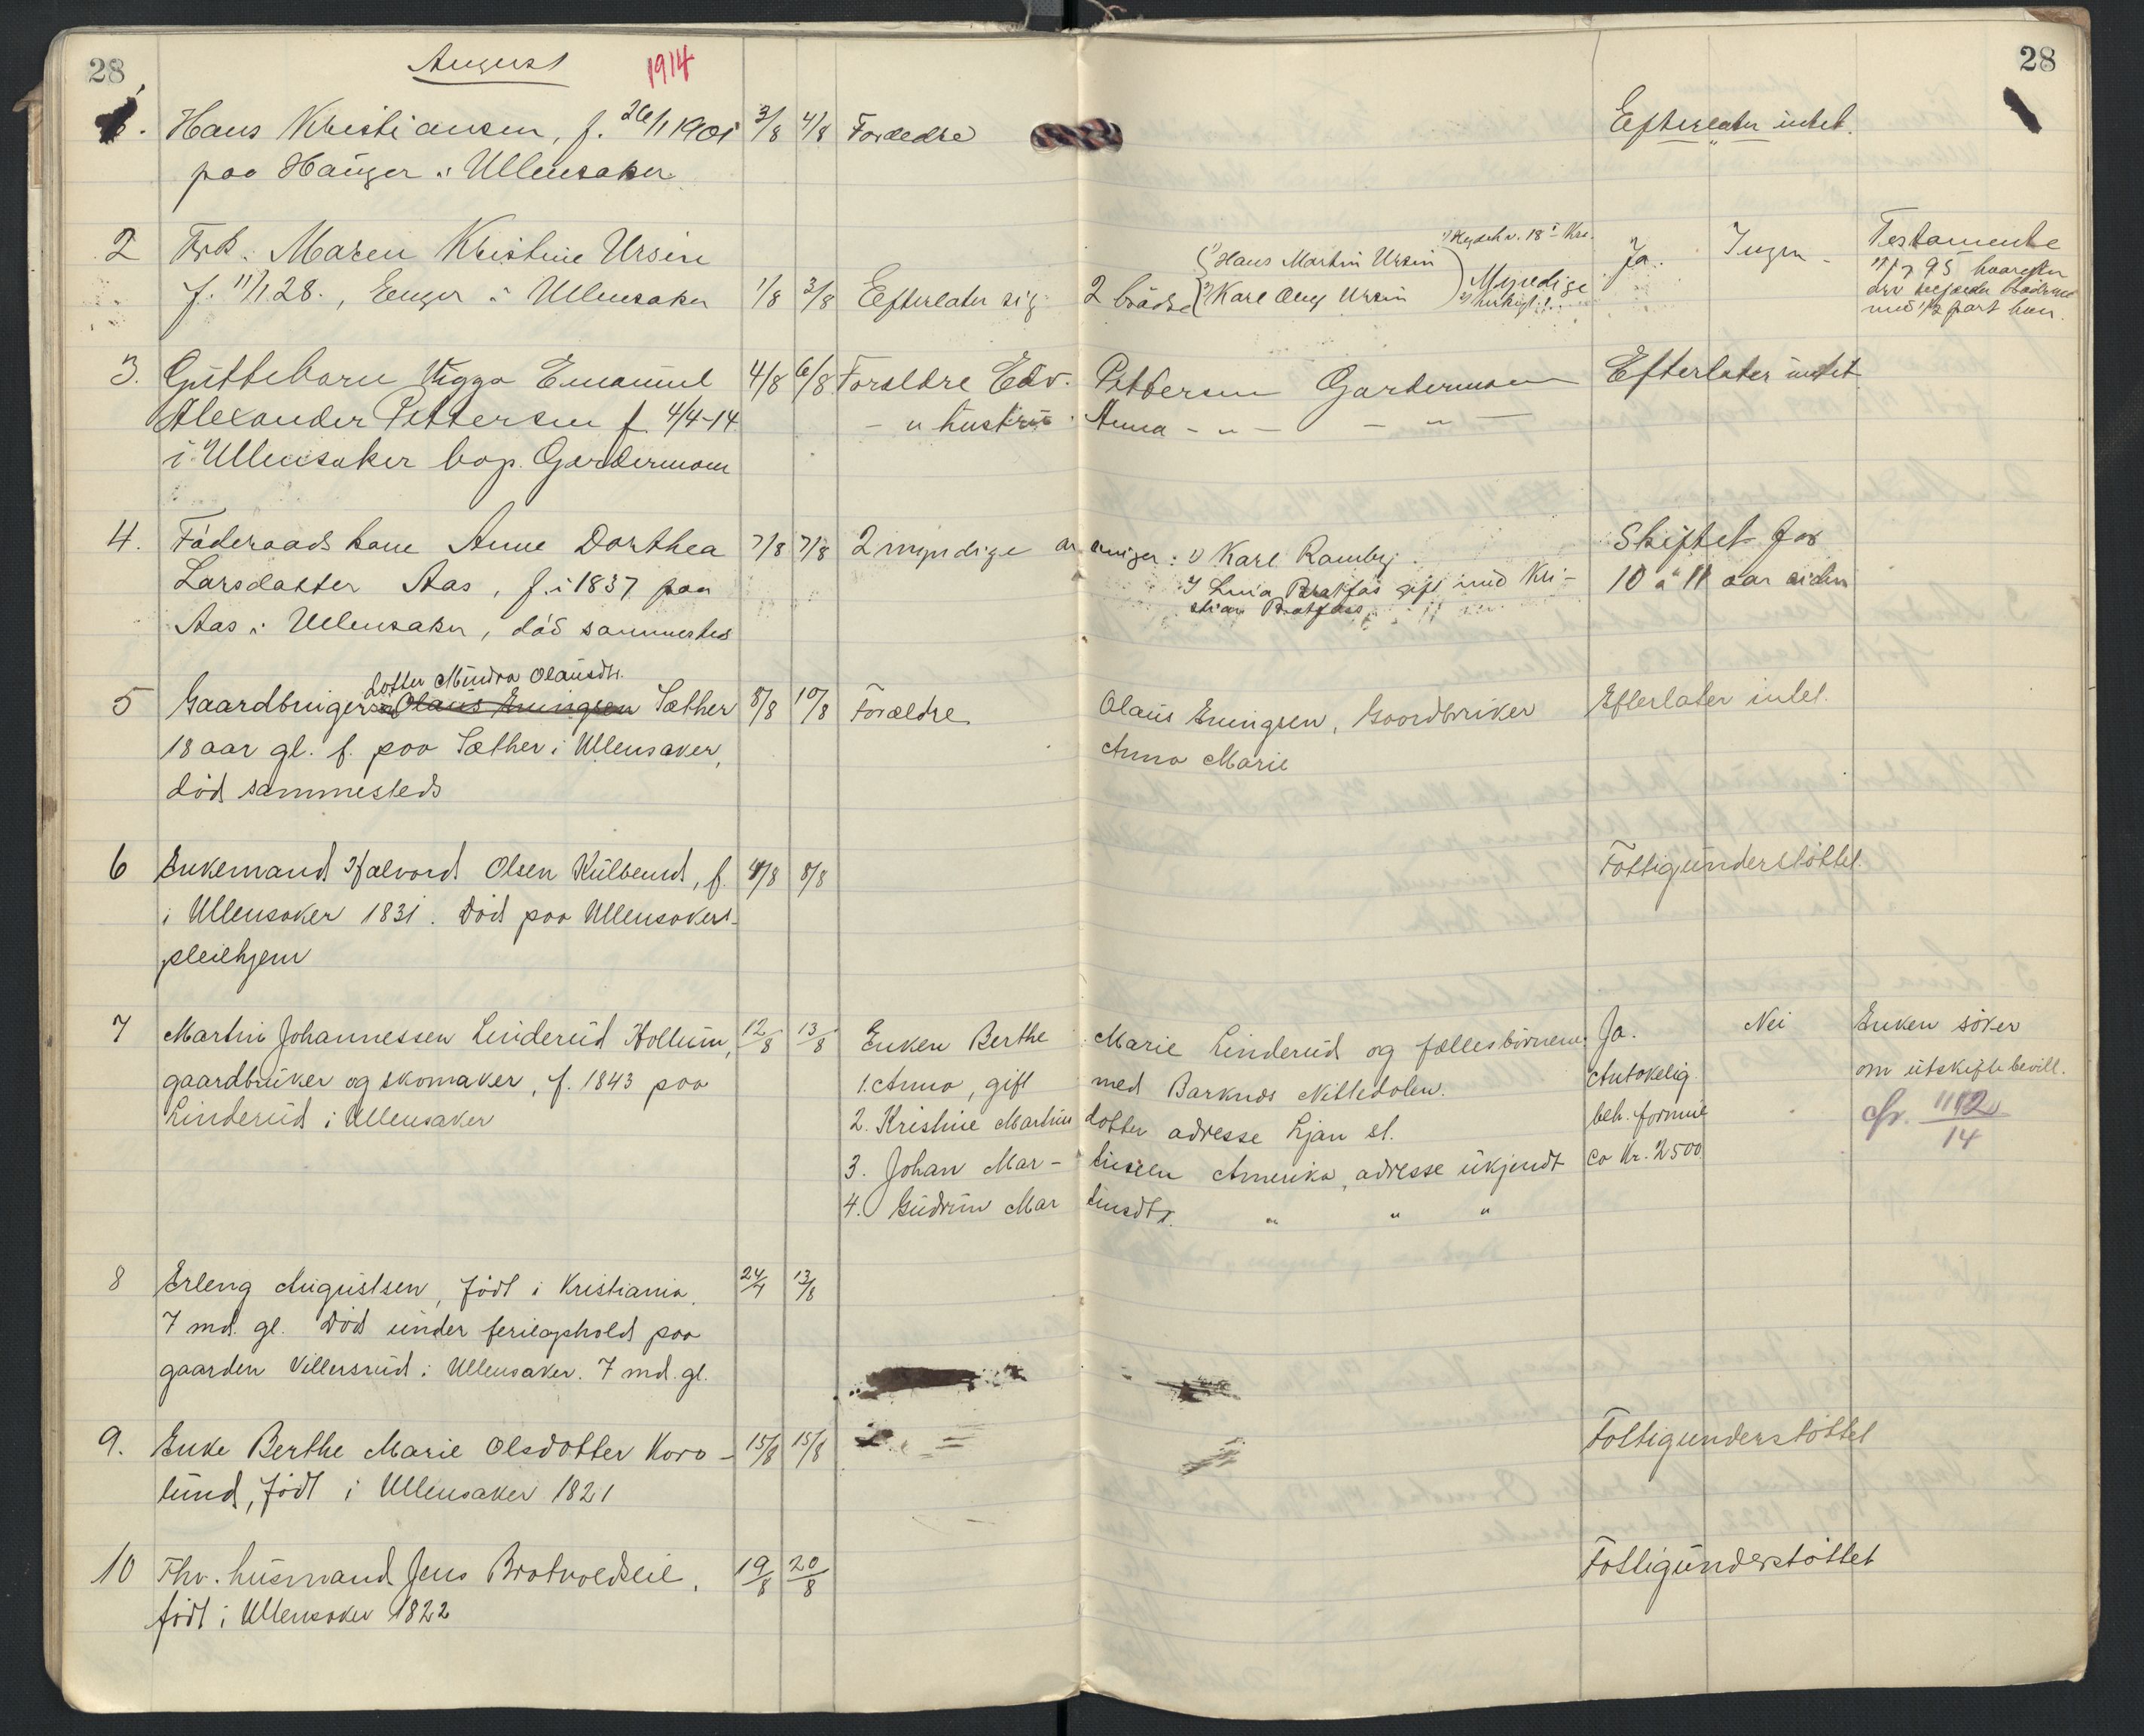 28
August 1914
28
Hans Kristiansen, f. 26/1 1901 3/8 4/8 Forældre Efterlater intet.
paa Hauger i Ullensaker
2 Frk. Maren Kristine Ursin
f. 11/1 28., Enger i Ullensaker 1/8 3/8 Efterlater sig 2 brødre
1) Hans Martin Ursin
2) Karl Ursin
Myndige
Ja. Ingen
Testamente
3. Guttebarn Viggo Emanuel 4/8 6/8 Foreldre Edv. Pettersen Gardermoen Efterlater intet
Alexander Pettersen f. 4/4-14 - " hustru Anna - " - - " -
i Ullensaker bop. Gardermoen
4. Føderaadskone Anne Dorthea 7/8 7/8 2 myndige arvinger: 1) Karl Ramberg. Skiftet for
Larsdatter Aas, f. i 1837 paa gift med Kri- 10 a 11 aar siden
Aas i Ullensaker, død sammesteds stian
datter Mindra Olausdtr.
5 Gaardbruger Olaus Eningsen Sæther 8/8 10/8 Forældre Olaus Eningsen, Gaardbruker Efterlater intet.
18 aar gl. f. paa Sæther i Ullensaker, Anna Marie
død sammesteds
6 Enkemand Halvord Olsen Kulbeund, f. 4/8 8/8 Fattigunderstøttet.
i Ullensaker 1831. Død paa Ullensakers
pleiehjem
7 Martin Johannessen Linderud Hollum, 12/8 13/8 Enken Berthe Marie Linderud og fællesbørnene Ja. Nei Enken søker
gaardbruker og skomaker, f. 1843 paa 1. Anna, gift med Barknes Nittedalen. Antakelig om utskiftebevill.
Linderud i Ullensaker 2. Kristine Martinsdatter adresse Ljan st. beh. formue cfr. 1112/14
3. Johan Martinsen Amerika, adresse ukjendt ca Kr. 2500
4. Gudrun Martinsdtr. " " "
8 Erling Augustsen, født i Kristiania. 24/4 13/8
7 md. gl. Død under ferieophold paa
gaarden Villersrud i Ullensaker. 7 md. gl.
9. Enke Berthe Marie Olsdatter Koro- 15/8 15/8 Fattigunderstøttet
lund, født i Ullensaker 1821
10 Fhv. husmand Jens Brotvoldseie, 19/8 20/8 Fattigunderstøttet
født i Ullensaker 1822